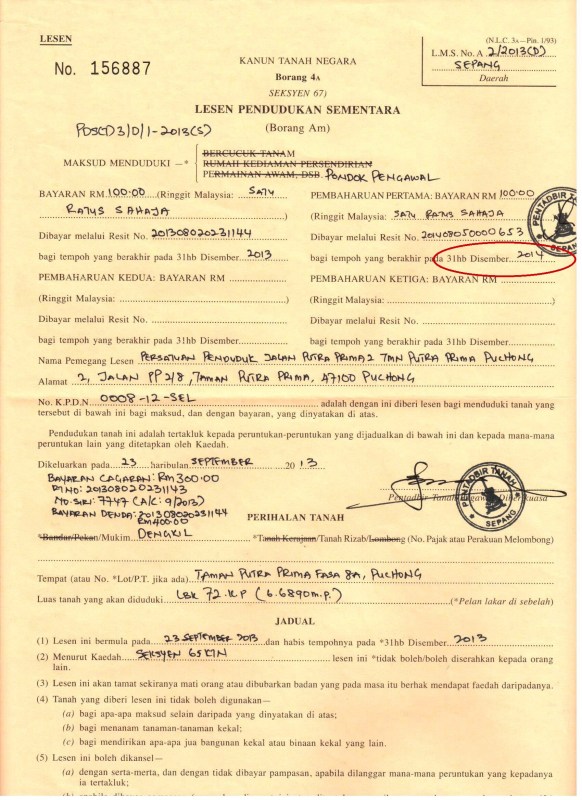 LESEN
(N.L.C. 3A—Pin. 1/93)
No. 156887
KANUN TANAH NEGARA
L.M.S. No. A 2/2013(D)
SEPANG
Daerah
Borang 4A
SEKSYEN 67)
LESEN PENDUDUKAN SEMENTARA
(Borang Am)
PDSCD3/D/1-2013(S)
MAKSUD MENDUDUKI —* BERCUCUK TANAM
RUMAH KEDIAMAN PERSENDIRIAN
PERMAINAN AWAM, DSB. PONDOK PENGAWAL
BAYARAN RM 100.00 (Ringgit Malaysia: SATU
RATUS SAHAJA
Dibayar melalui Resit No. 201308020231144
bagi tempoh yang berakhir pada 31hb Disember 2013
PEMBAHARUAN PERTAMA: BAYARAN RM 100.00
(Ringgit Malaysia: SATU RATUS SAHAJA
Dibayar melalui Resit No. 20140805000653
bagi tempoh yang berakhir pada 31hb Disember 2014
PEMBAHARUAN KEDUA: BAYARAN RM
(Ringgit Malaysia: )
Dibayar melalui Resit No.
bagi tempoh yang berakhir pada 31hb Disember
PEMBAHARUAN KETIGA: BAYARAN RM
(Ringgit Malaysia: )
Dibayar melalui Resit No.
bagi tempoh yang berakhir pada 31hb Disember
Nama Pemegang Lesen PERSATUAN PENDUDUK JALAN PUTRA PRIMA 2 TMN PUTRA PRIMA PUCHONG
Alamat 2, JALAN PP 2/8, TAMAN PUTRA PRIMA, 47100 PUCHONG
No. K.P.D.N. 0008-12-SEL adalah dengan ini diberi lesen bagi menduduki tanah yang
tersebut di bawah ini bagi maksud, dan dengan bayaran, yang dinyatakan di atas.
Pendudukan tanah ini adalah tertakluk kepada peruntukan-peruntukan yang dijadualkan di bawah ini dan kepada mana-mana
peruntukan lain yang ditetapkan oleh Kaedah.
Dikeluarkan pada 23 haribulan SEPTEMBER 2013
BAYARAN CAGARAN: RM300.00
NO: 201308020231143
NO. SIRI: 7747 (A/C: 9/2013)
BAYARAN DENDA: 201308020231144
RM400.00
Pentadbir Tanah
PENTADBIR TANAH
SEPANG
PERIHALAN TANAH
*Bandar/Pekan/Mukim DENGKIL *Tanah Kerajaan/Tanah Rizab/Lombong (No. Pajak atau Perakuan Melombong)
Tempat (atau No. *Lot/P.T. jika ada) TAMAN PUTRA PRIMA FASA 8A, PUCHONG
Luas tanah yang akan diduduki LBK 72 K.P (6.6890m.p.) (*Pelan lakar di sebelah)
JADUAL
(1) Lesen ini bermula pada 23 SEPTEMBER 2013 dan habis tempohnya pada *31hb Disember 2013
(2) Menurut Kaedah SEKSYEN 65 KTN lesen ini *tidak boleh/boleh diserahkan kepada orang
lain.
(3) Lesen ini akan tamat sekiranya mati orang atau dibubarkan badan yang pada masa itu berhak mendapat faedah daripadanya.
(4) Tanah yang diberi lesen ini tidak boleh digunakan—
(a) bagi apa-apa maksud selain daripada yang dinyatakan di atas;
(b) bagi menanam tanaman-tanaman kekal;
(c) bagi mendirikan apa-apa jua bangunan kekal atau binaan kekal yang lain.
(5) Lesen ini boleh dikansel—
(a) dengan serta-merta, dan dengan tidak dibayar pampasan, apabila dilanggar mana-mana peruntukan yang kepadanya
ia tertakluk;